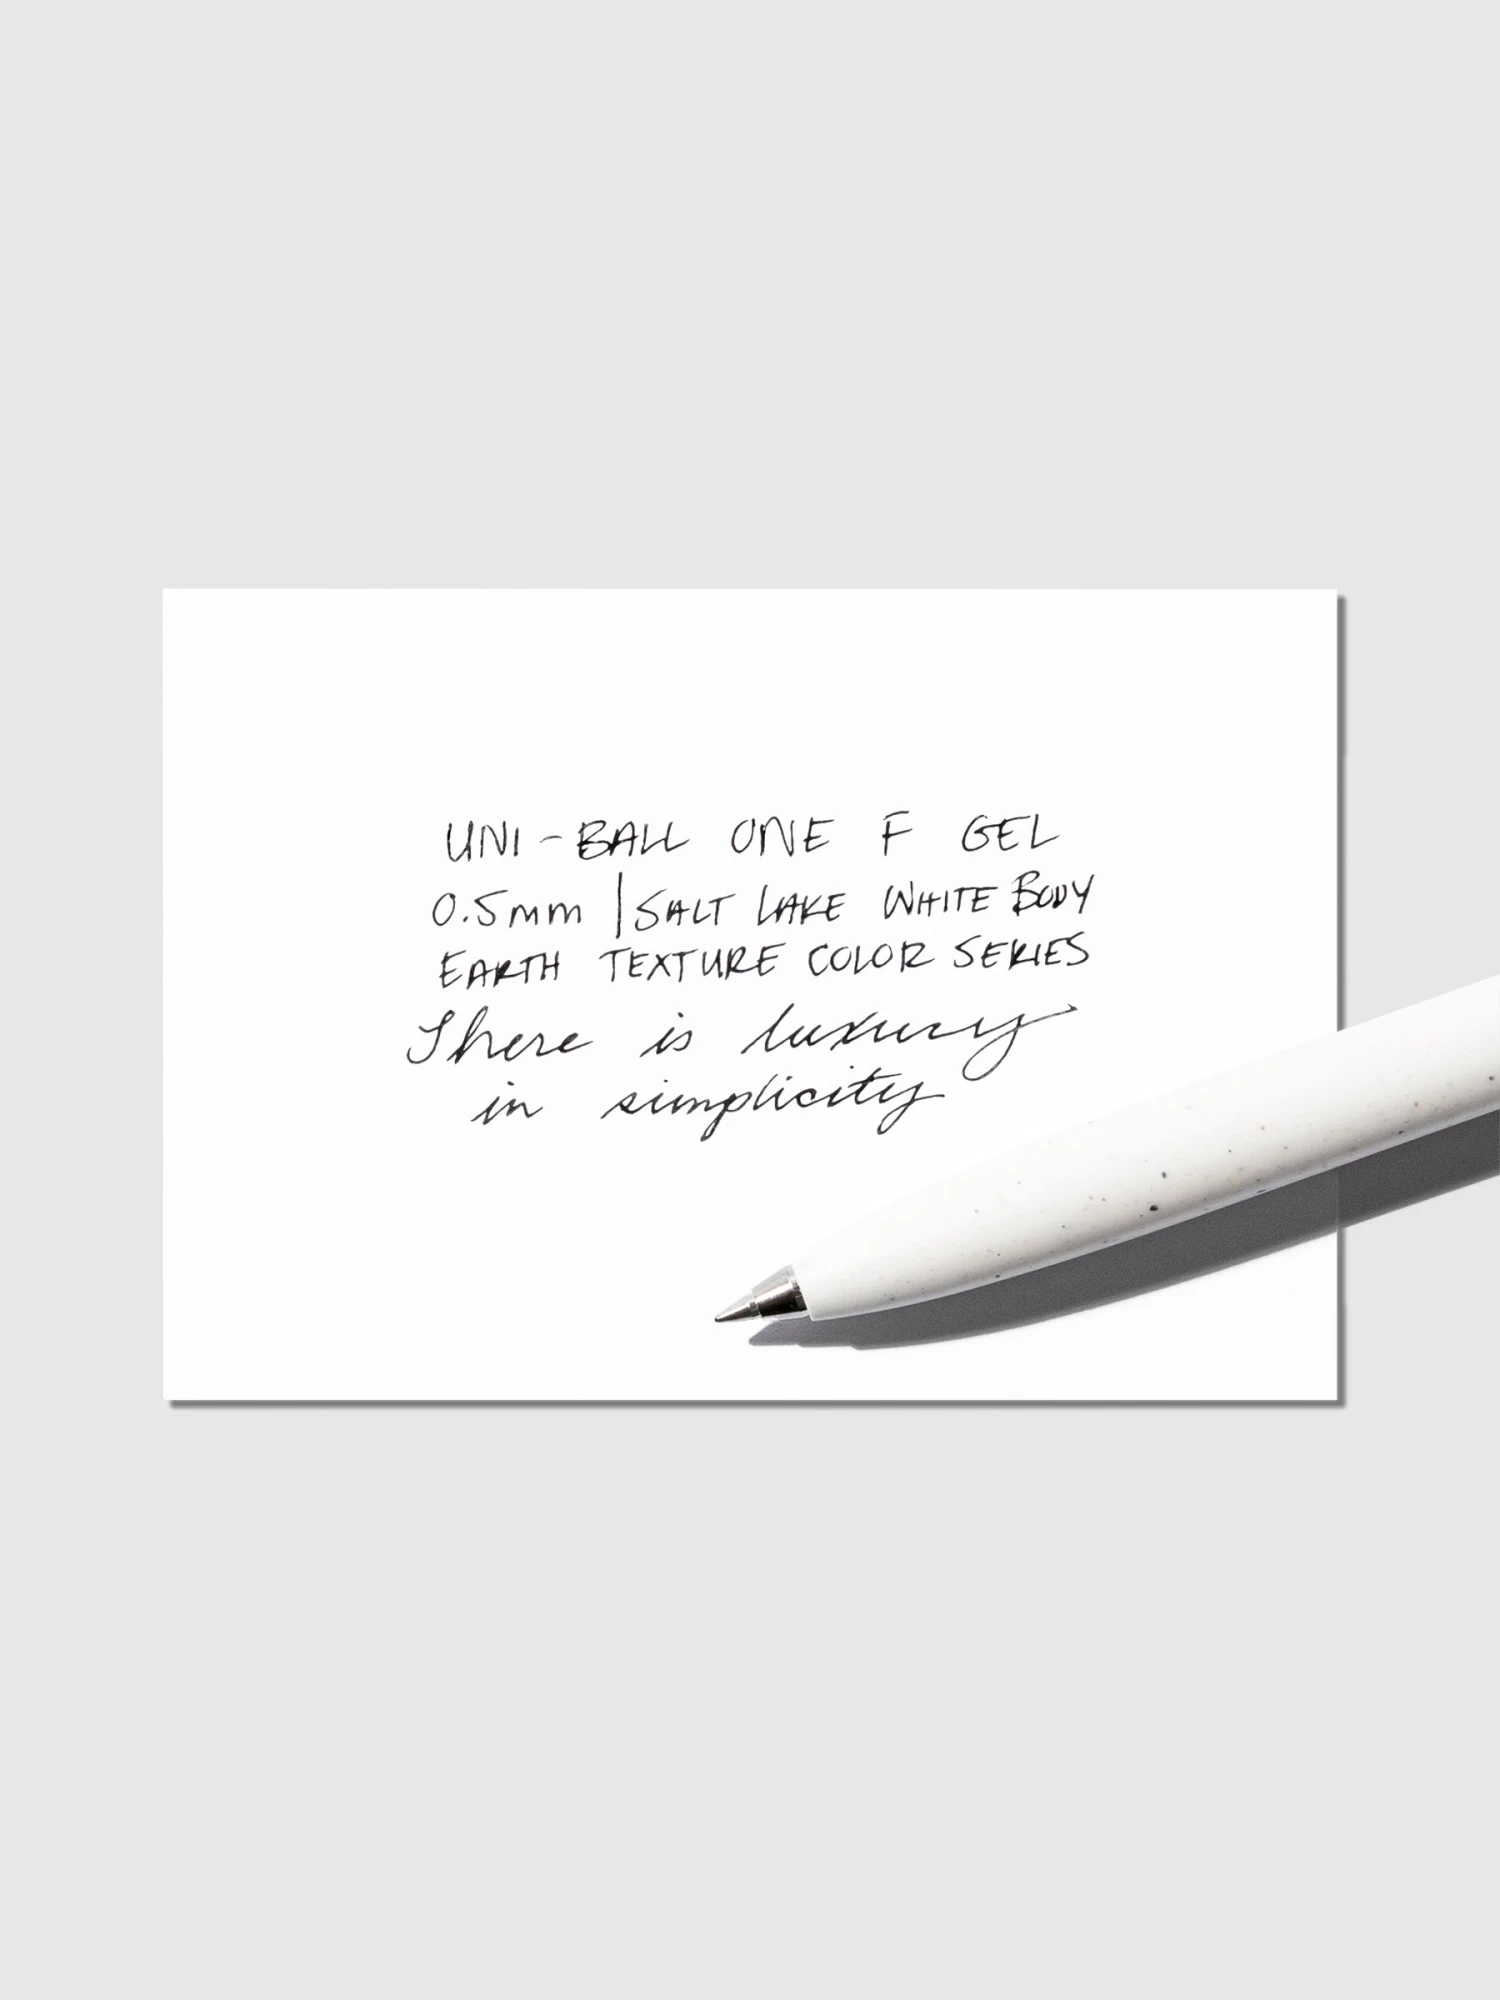 UNI-BALL ONE F GEL
0.5mm | SALT LAKE WHITE BODY
EARTH TEXTURE COLOR SERIES
There is luxury
in simplicity